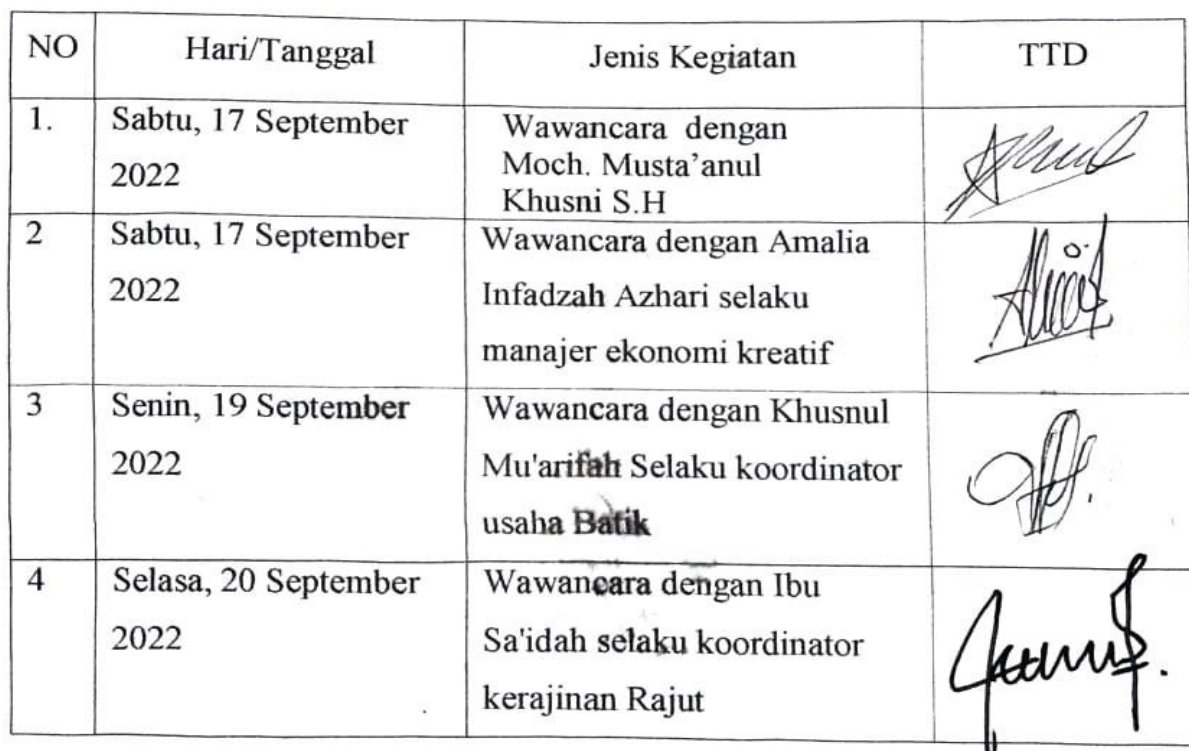 NO Hari/Tanggal Jenis Kegiatan TTD
1. Sabtu, 17 September Wawancara dengan
2022 Moch. Musta'anul
Khusni S.H
2 Sabtu, 17 September Wawancara dengan Amalia
2022 Infadzah Azhari selaku
manajer ekonomi kreatif
3 Senin, 19 September Wawancara dengan Khusnul
2022 Mu'arifah Selaku koordinator
usaha Batik
4 Selasa, 20 September Wawancara dengan Ibu
2022 Sa'idah selaku koordinator
kerajinan Rajut